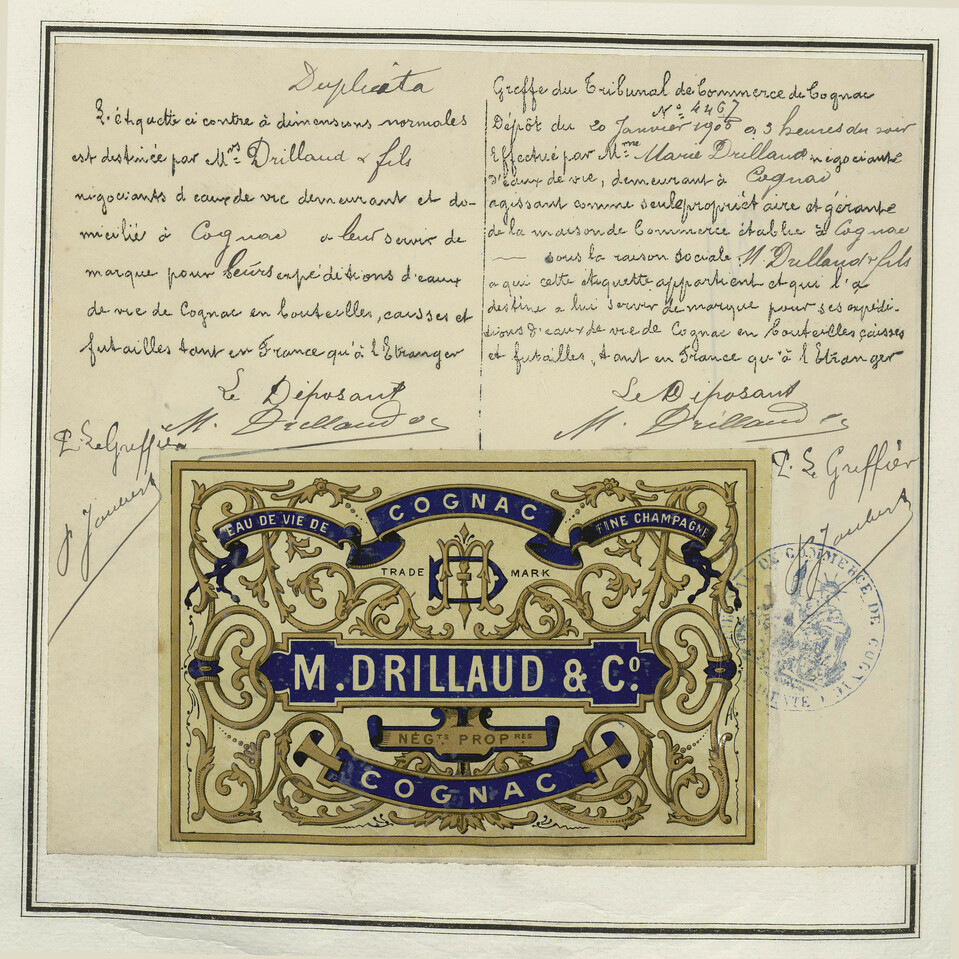 Duplicata
L'étiquette ci contre à dimensions normales
est destinée par Mrs Drillaud & fils
négociants d'eaux de vie demeurant et do-
micilié à Cognac a leur servir de
marque pour leurs expéditions d'eaux
de vie de Cognac en bouteilles, caisses et
futailles tant en France qu'à l'Etranger
Le Déposant
M. Drillaud
P. Le Greffier
Greffe du Tribunal de Commerce de Cognac
No 4467
Dépôt du 20 Janvier a 3 heures du soir
Effectué par Mme Marie Drillaud négociante
d'eaux de vie, demeurant à Cognac
agissant comme seule propriétaire et gérante
de la maison de Commerce établie à Cognac
— sous la raison sociale M. Drillaud & fils
a qui cette étiquette appartient et qui l'a
destine a lui servir de marque pour ses expédi-
tions d'eaux de vie de Cognac en bouteilles caisses
et futailles, tant en France qu'à l'Etranger
Le Déposant
M. Drillaud
P. Le Greffier
EAU DE VIE DE COGNAC FINE CHAMPAGNE
TRADE MARK
M. DRILLAUD & Co.
NÉGTS PROPRES
COGNAC
DE COMMERCE DE COGNAC